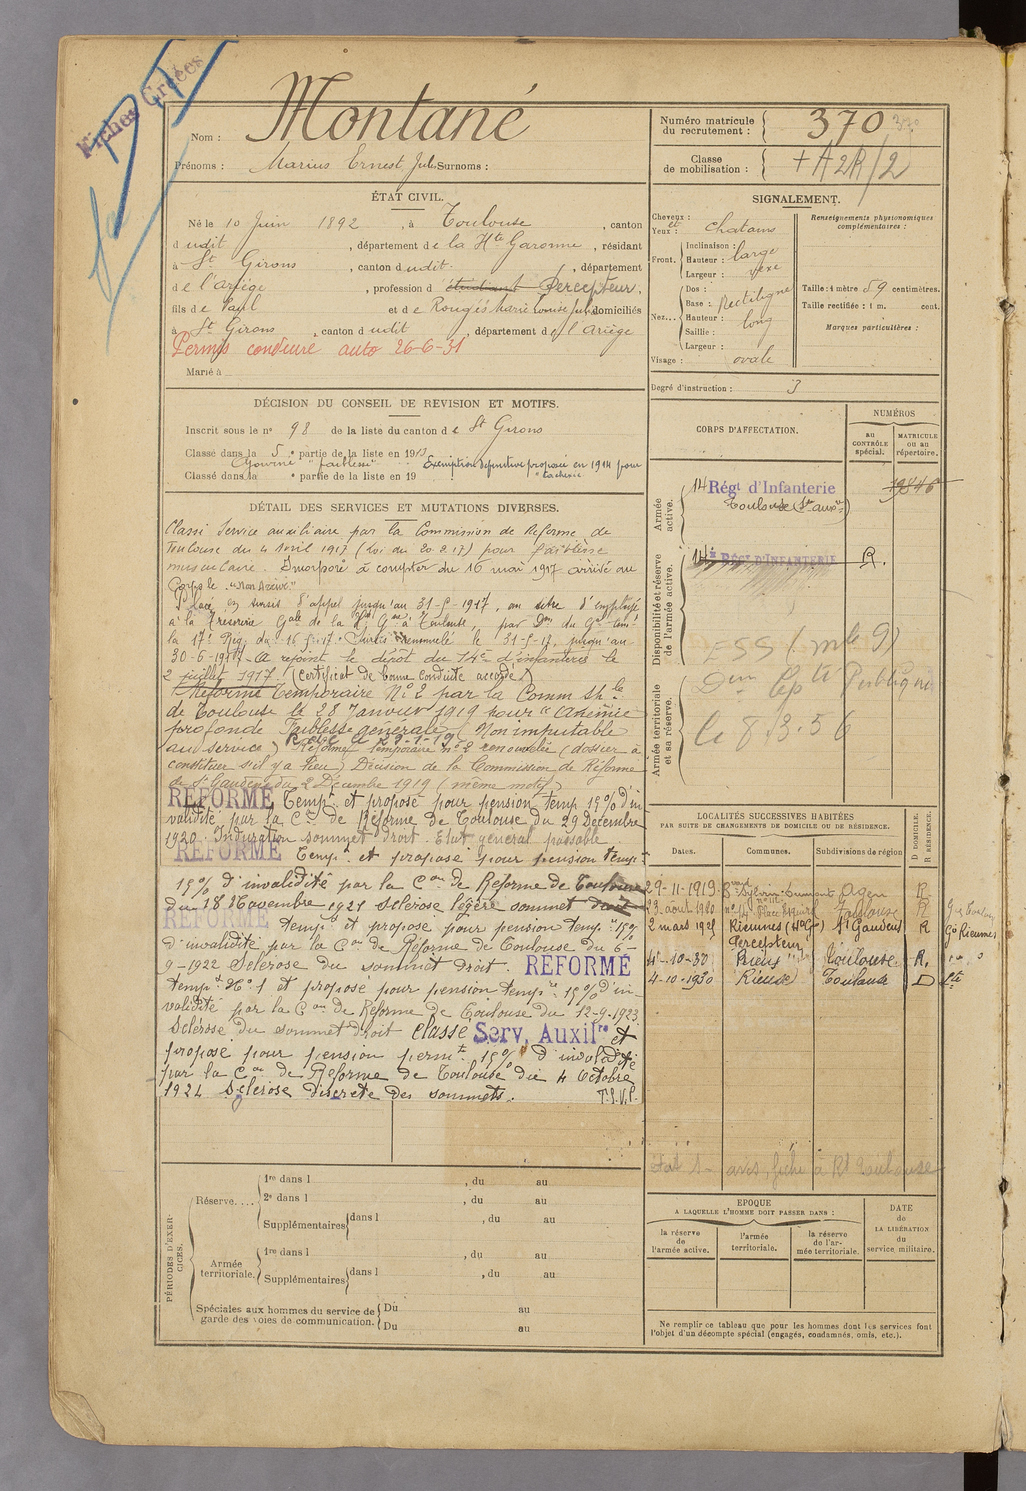 Fiches Créées
Montané
Nom :
Prénoms : Marius Ernest Jules Surnoms :
Numéro matricule du recrutement : 370
Classe de mobilisation : + A2R/2
ÉTAT CIVIL.
Né le 10 Juin 1892, à Toulouse, canton
dudit, département de la Hte Garonne, résidant
à St Girons, canton dudit, département
de l'Ariège, profession d étudiant Percepteur.
fils de Paul et de Rougés Marie Louise Julie domiciliés
à St Girons, canton dudit, département de l'Ariège
Permis conduire auto 26-6-31
Marié à
SIGNALEMENT.
Cheveux : et
Yeux : chatains
Front.
Inclinaison :
Hauteur : large
Largeur : vexe
Nez...
Dos :
Base : Rectiligne
Hauteur : long
Saillie :
Largeur :
Visage : ovale
Renseignements physionomiques complémentaires :
Taille : 1 mètre 59 centimètres.
Taille rectifiée : 1 m. cent.
Marques particulières :
Degré d'instruction : 3
DÉCISION DU CONSEIL DE REVISION ET MOTIFS.
Inscrit sous le no 98 de la liste du canton de St Girons
Classé dans la 5e partie de la liste en 1913
Ajourné "faiblesse" Exemption définitive proposée en 1914 pour
Classé dans la e partie de la liste en 19 "cachexie.
CORPS D'AFFECTATION.
NUMÉROS
au CONTRÔLE spécial.
MATRICULE ou au répertoire.
Armée active.
14 Régt d'Infanterie
Toulouse (Son auxre)
Disponibilité et réserve de l'armée active.
14e RÉGT D'INFANTERIE R.
ESS (mle 9)
Armée territoriale et sa réserve.
Dem Cpté Publique
le 8.3.56
DÉTAIL DES SERVICES ET MUTATIONS DIVERSES.
Classé Service auxiliaire par la Commission de Réforme de
Toulouse du 4 Avril 1917 (Loi du 20.2.17) pour faiblesse
musculaire. Incorporé à compter du 16 mai 1917 arrivé au
Corps le "Non Arrivé"
Placé en sursis d'appel jusqu'au 31-5-1917, au titre d'employé
à la Trésorerie Gale de la Hte Gne à Toulouse, par Don du Gal Comt
la 17e Rég. du 16-5-17. Sursis renouvelé le 31-5-17, jusqu'au
30-6-1917. A rejoint le dépôt du 14e d'infanterie le
2 juillet 1917. (Certificat de bonne conduite accordé)
Réformé Temporaire No 2 par la Comm. Sple
de Toulouse le 28 Janvier 1919 pour "Anémie
profonde Faiblesse générale" (Non imputable
au service) Rayé le 29-1-19 Réforme temporaire no 2 renouvelée (dossier à
constituer s'il y a lieu) Décision de la Commission de Réforme
de St Gaudens du 2 Décembre 1919 (même motif)
RÉFORMÉ Tempre et proposé pour pension temp 15% d'in
validité par la Con de Réforme de Toulouse du 29 Décembre
1920. Induration sommet droit. Etat général passable
RÉFORMÉ Temp. et proposé pour pension temp.
15% d'invalidité par la Con de Réforme de Toulouse
du 18 Novembre 1921 Sclérose légère sommet droit
RÉFORMÉ tempre et proposé pour pension tempre 15%
d'invalidité par la Con de Réforme de Toulouse du 6-
9-1922 Sclérose du sommet droit. RÉFORMÉ
tempre No 1 et proposé pour pension tempre 15% d'in-
validité par la Con de Réforme de Toulouse du 12-9-1923
Sclérose du sommet droit classé Serv. Auxilre et
proposé pour pension permte 15% d'invalidité
par la Con de Réforme de Toulouse du 4 Octobre
1924 Sclérose discrète des sommets.
T.S.V.P.
LOCALITÉS SUCCESSIVES HABITÉES
PAR SUITE DE CHANGEMENTS DE DOMICILE OU DE RÉSIDENCE.
Dates. Communes. Subdivisions de région D DOMICILE. R RÉSIDENCE.
29-11-1919. Agen R
23 août 1920 Toulouse R
2 mars 1921 Rieumes (Hte G) St Gaudens R Gie Rieumes
Percepteur
4-10-30 Rieux Toulouse R.
4-10-1930 Rieux Toulouse D
PÉRIODES D'EXERCICES.
Réserve....
1re dans l , du au
2e dans l , du au
Supplémentaires dans l , du au
Armée territoriale.
1re dans l , du au
Supplémentaires dans l , du au
Spéciales aux hommes du service de garde des voies de communication.
Du au
Du au
EPOQUE
A LAQUELLE L'HOMME DOIT PASSER DANS :
la réserve de l'armée active.
l'armée territoriale.
la réserve de l'armée territoriale.
DATE de LA LIBÉRATION du service militaire.
Ne remplir ce tableau que pour les hommes dont les services font
l'objet d'un décompte spécial (engagés, condamnés, omis, etc.).